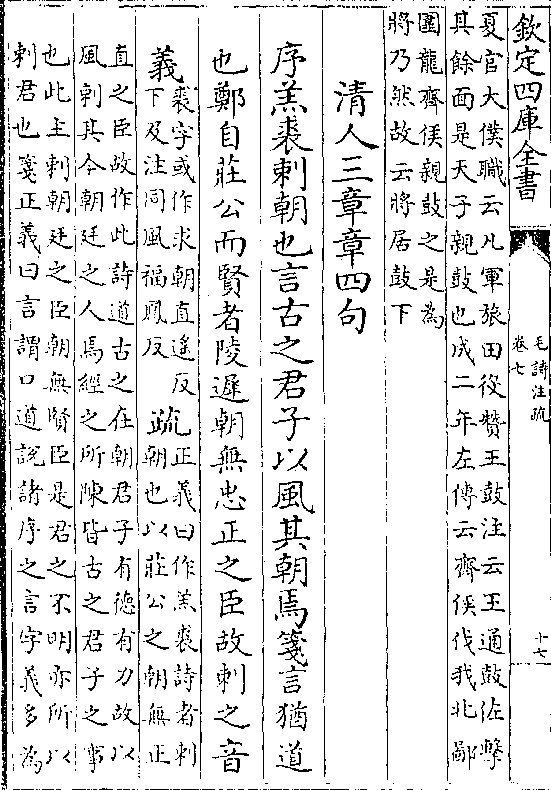 欽定四庫全書
毛詩注疏
卷七
十七
夏官大僕職云凡軍旅田役贊王鼓注云王通鼓佐擊
其餘面是天子親鼓也成二年左傳云齊侯伐我北鄙
圍龍齊侯親鼓之是為
將乃然故云將居鼓下
清人三章章四句
序羔裘刺朝也言古之君子以風其朝焉箋言猶道
也鄭自莊公而賢者陵遲朝無忠正之臣故刺之音
義裘字或作求朝直遙反
下及注同風福鳳反
疏正義曰作羔裘詩者刺
朝也以莊公之朝無正
直之臣故作此詩道古之在朝君子有德有力故以
風刺其今朝廷之人焉經之所陳皆古之君子之事
也此主刺朝廷之臣朝無賢臣是君之不明亦所以
刺君也箋正義曰言謂口道說諸序之言字義多為